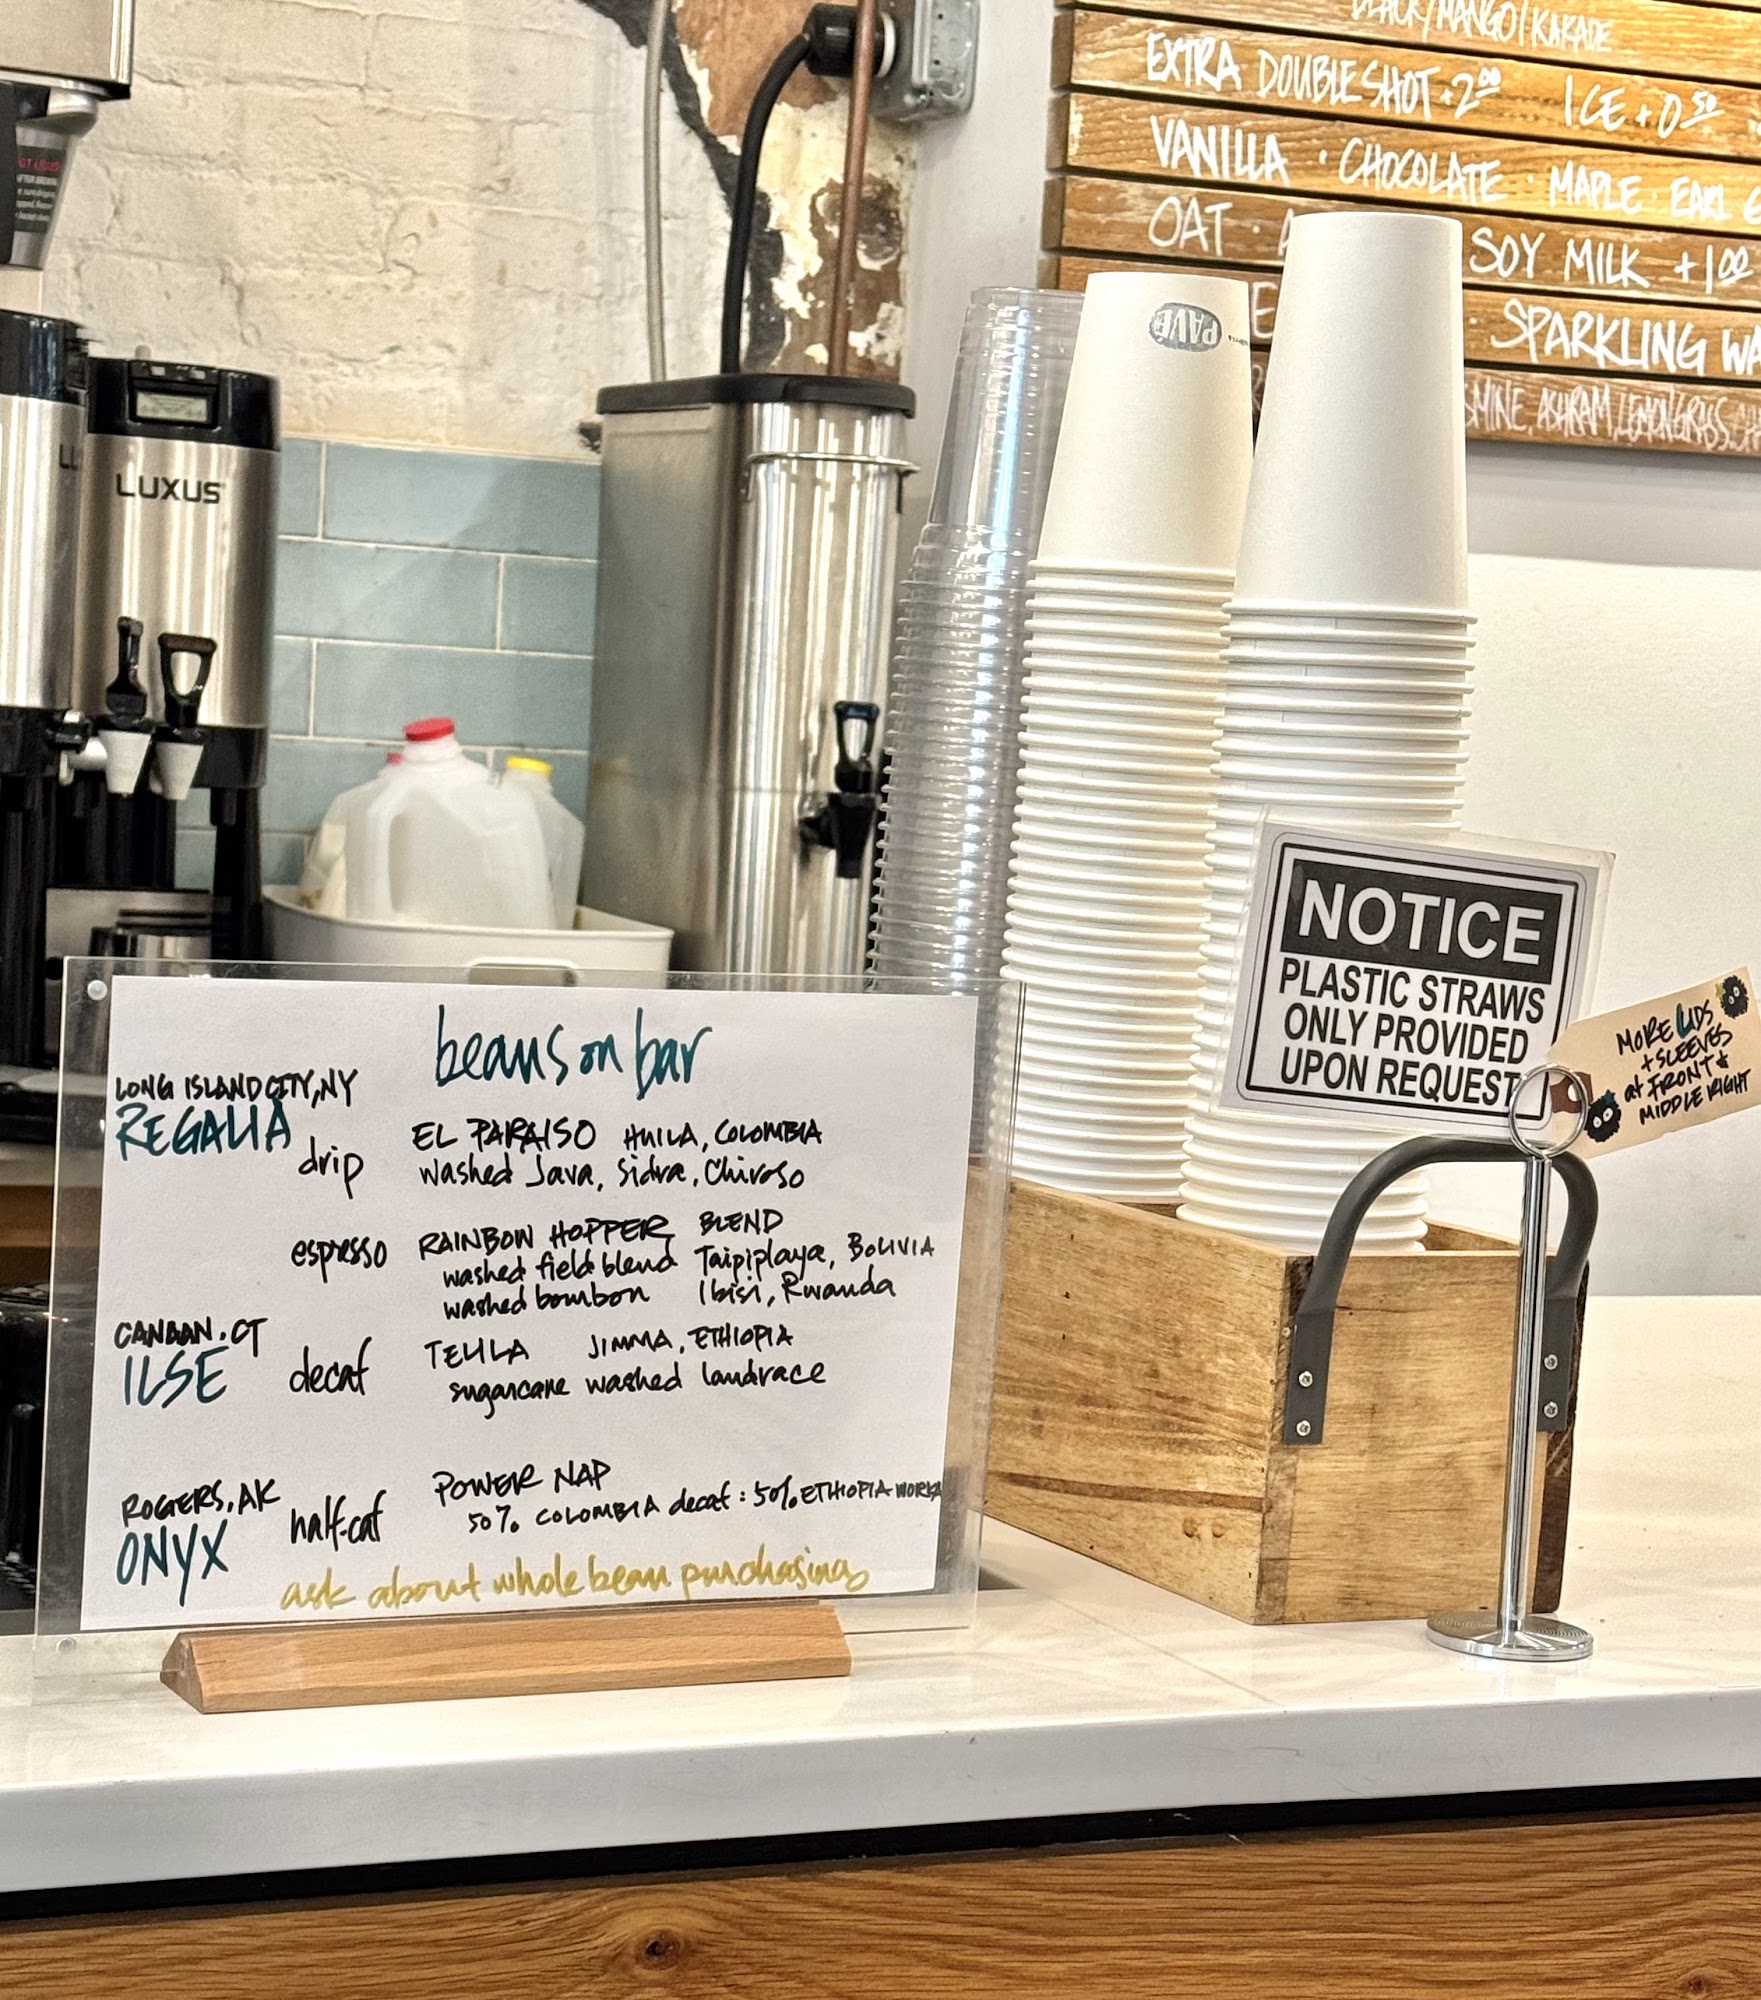 EXTRA DOUBLE SHOT +2.00 ICE +0.50
VANILLA · CHOCOLATE · MAPLE · EARL
OAT · SOY MILK +1.00
SPARKLING
ASHRAM, LEMONGRASS,
PAVÉ
LUXUS
NOTICE
PLASTIC STRAWS
ONLY PROVIDED
UPON REQUEST
MORE LIDS
+ SLEEVES
at FRONT &
MIDDLE RIGHT
beans on bar
LONG ISLAND CITY, NY
REGALIA
drip
EL PARAISO HUILA, COLOMBIA
washed Java, Sidra, Chiroso
espresso
RAINBOW HOPPER BLEND
washed field blend Taipiplaya, BOLIVIA
washed bourbon Ibisi, Rwanda
CANAAN, CT
ILSE
decaf
TELILA JIMMA, ETHIOPIA
sugarcane washed landrace
ROGERS, AK
ONYX
half-caf
POWER NAP
50% COLOMBIA decaf : 50% ETHIOPIA WORKA
ask about whole bean purchasing